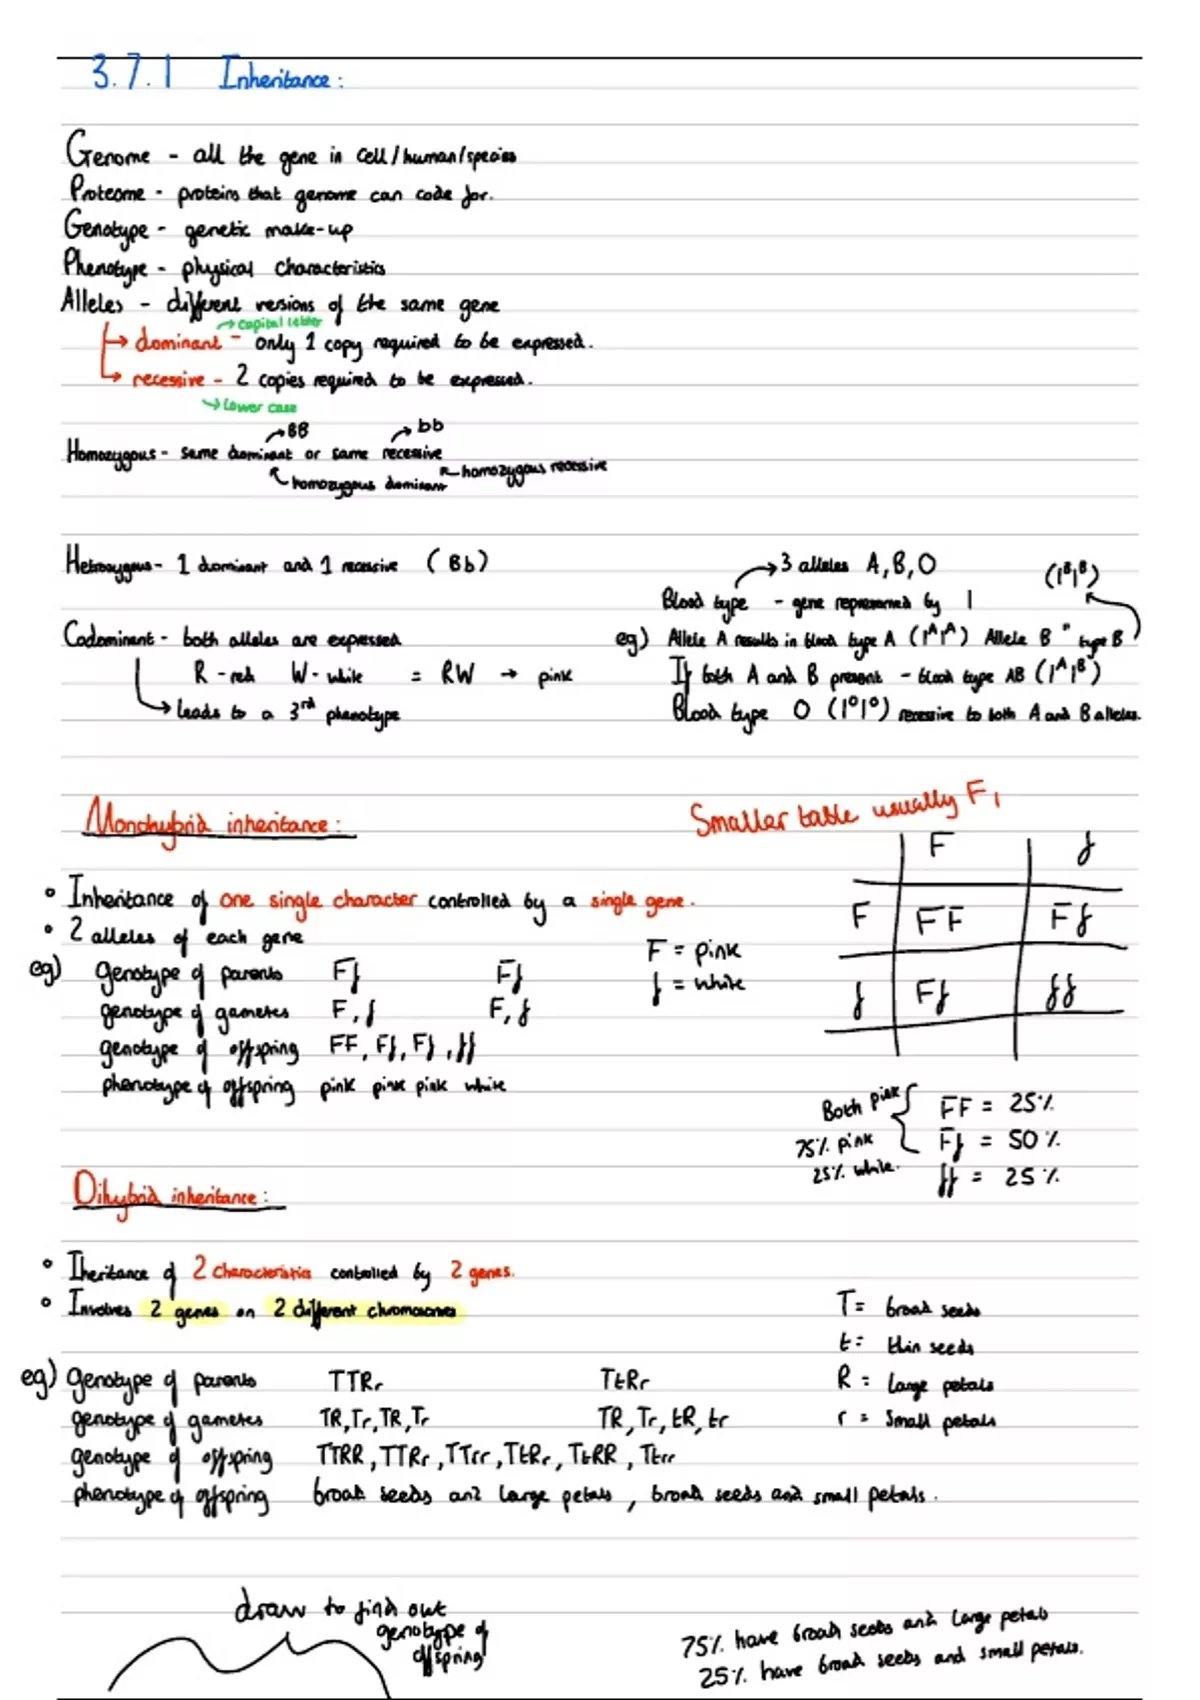 3.7.1 Inheritance:
Genome - all the gene in cell/human/species
Proteome - proteins that genome can code for.
Genotype - genetic make-up
Phenotype - physical characteristics
Alleles - different versions of the same gene
→ capital letter
→ dominant - only 1 copy required to be expressed.
→ recessive - 2 copies required to be expressed.
→ lower case
→BB →bb
Homozygous - same dominant or same recessive
homozygous dominant homozygous recessive
Hetrozygous - 1 dominant and 1 recessive (Bb)
→3 alleles A, B, O (IᴮIᴮ)
Blood type - gene represented by I
Codominant - both alleles are expressed
eg) Allele A results in blood type A (IᴬIᴬ) Allele B " type B
R - red W - white = RW → pink
If both A and B present - blood type AB (IᴬIᴮ)
→ leads to a 3rd phenotype
Blood type O (IᴼIᴼ) recessive to both A and B alleles.
Monohybrid inheritance:
Smaller table usually F₁
F f
F FF Ff
f Ff ff
• Inheritance of one single character controlled by a single gene.
• 2 alleles of each gene
F = pink
f = white
eg) genotype of parents Ff Ff
genotype of gametes F, f F, f
genotype of offspring FF, Ff, Ff, ff
phenotype of offspring pink pink pink white
Both pink { FF = 25%
75% pink Ff = 50%
25% white. ff = 25%
Dihybrid inheritance:
• Iheritance of 2 characteristics controlled by 2 genes.
• Involves 2 genes on 2 different chromosomes
T = broad seeds
t = thin seeds
R = Large petals
r = small petals
eg) genotype of parents TTRr TtRr
genotype of gametes TR, Tr, TR, Tr TR, Tr, tR, tr
genotype of offspring TTRR, TTRr, TTrr, TtRr, TtRR, Ttrr
phenotype of offspring broad seeds and large petals, broad seeds and small petals.
draw to find out
genotype of
offspring
75% have broad seeds and large petals
25% have broad seeds and small petals.